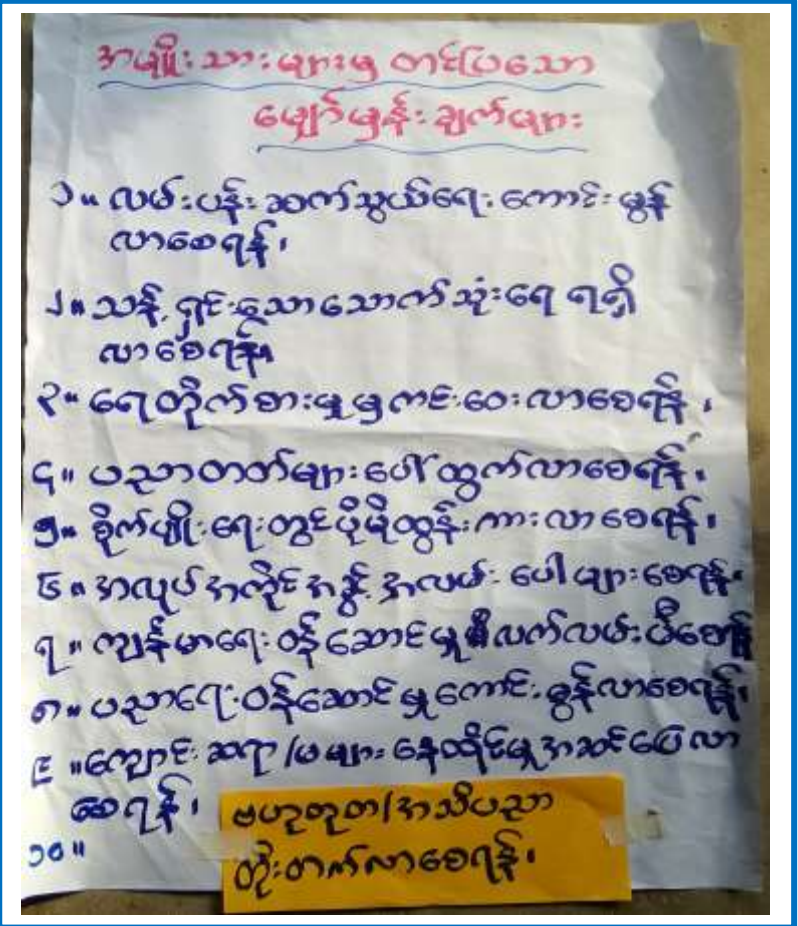 အမျိုးသားများမှ တင်ပြသော
မျှော်မှန်းချက်များ
၁။ လမ်းပန်းဆက်သွယ်ရေး ကောင်းမွန်
လာစေရန်၊
၂။ သန့်ရှင်းသော သောက်သုံးရေ ရရှိ
လာစေရန်။
၃။ ရေတိုက်စားမှုမှ ကင်းဝေးလာစေရန်၊
၄။ ပညာတတ်များ ပေါ်ထွက်လာစေရန်၊
၅။ စိုက်ပျိုးရေးတွင် ပိုမိုထွန်းကားလာစေရန်၊
၆။ အလုပ်အကိုင်အခွင့်အလမ်း ပေါများစေရန်၊
၇။ ကျန်းမာရေးဝန်ဆောင်မှု လက်လမ်းမီစေရန်
၈။ ပညာရေးဝန်ဆောင်မှု ကောင်းမွန်လာစေရန်၊
၉။ ကျောင်းဆရာ/မများ နေထိုင်မှု အဆင်ပြေလာ
စေရန်၊
၁၀။
ဗဟုသုတ/အသိပညာ
တိုးတက်လာစေရန်၊